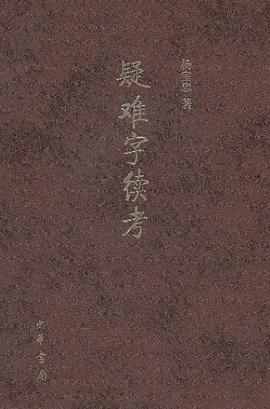 杨宝忠 著
疑难字续考
中华书局